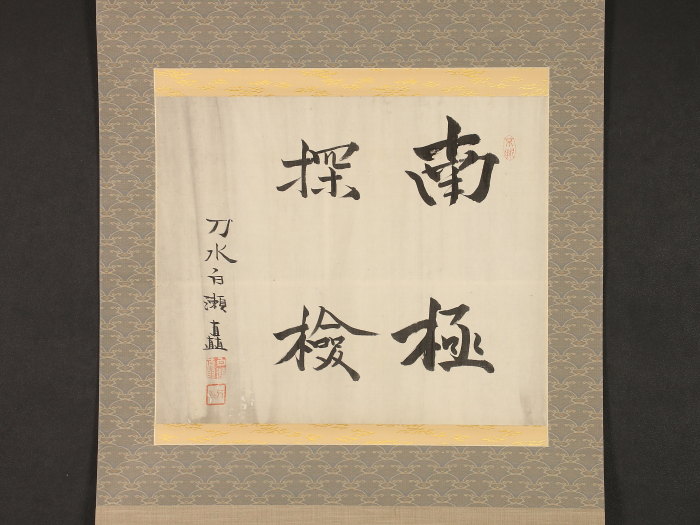 南極
探檢
刀水白瀬矗